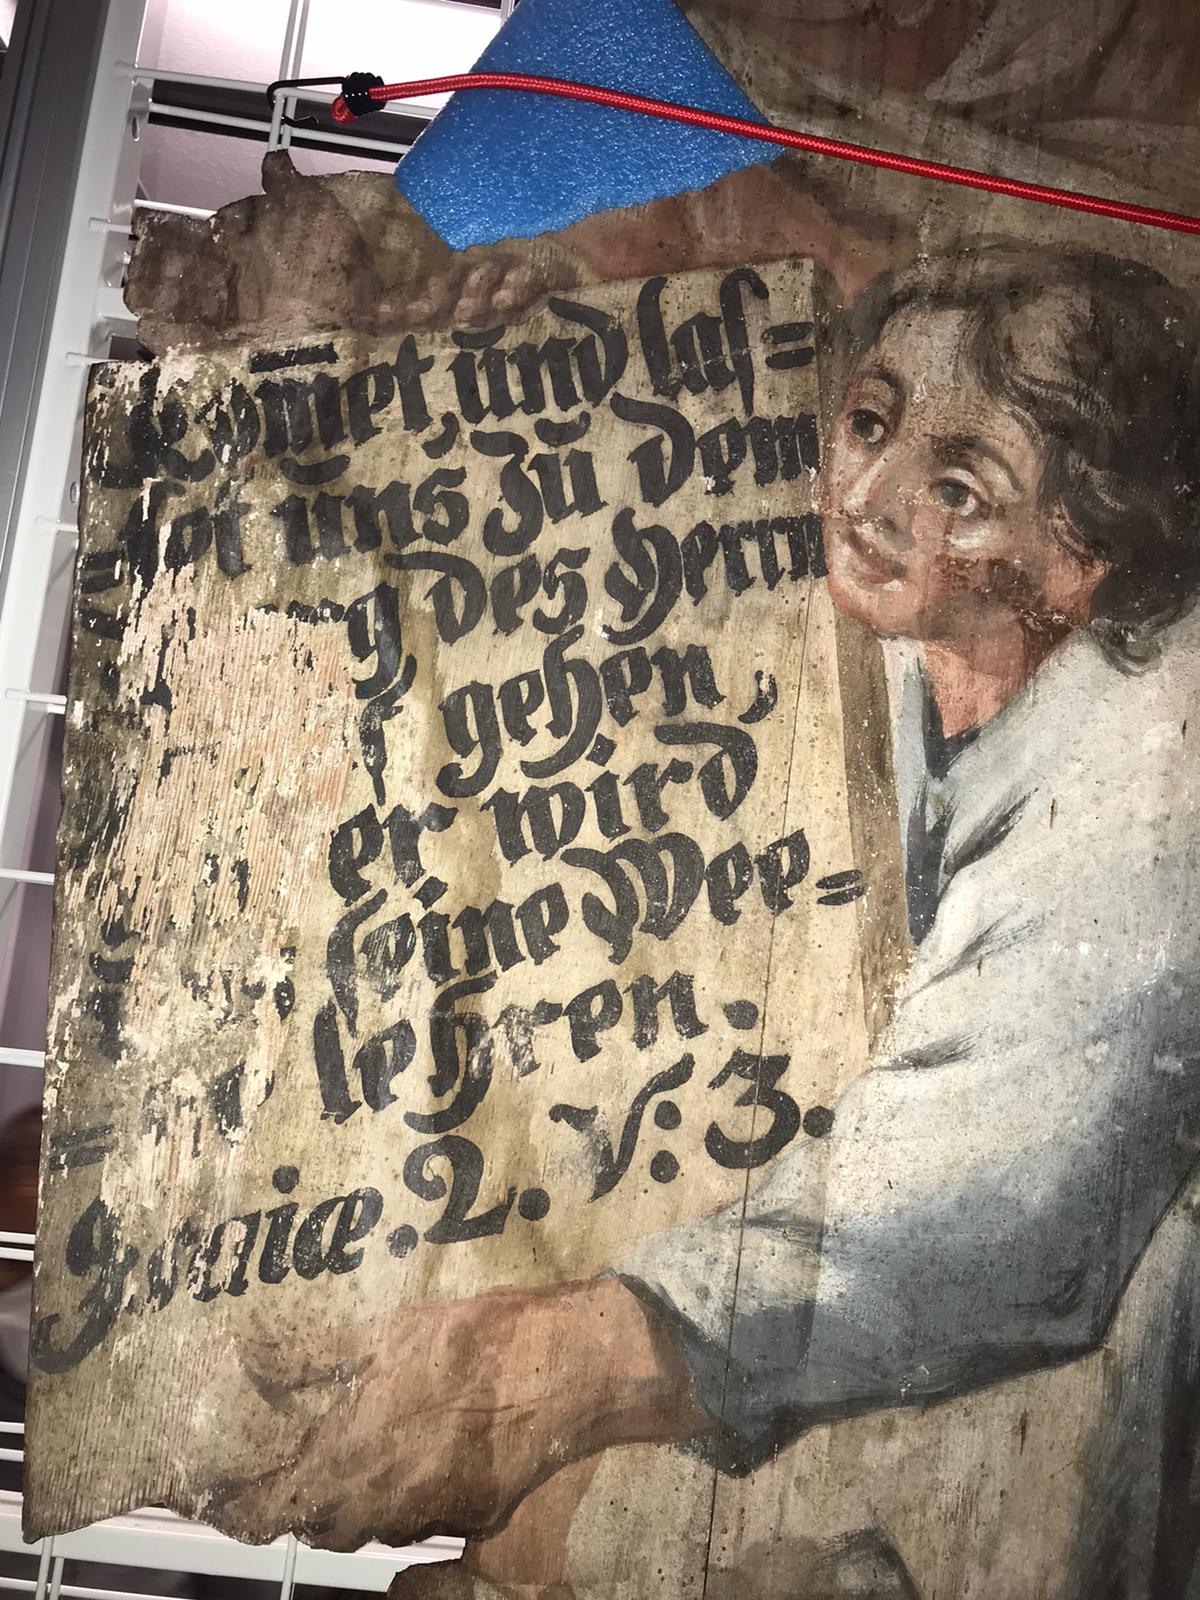 kom̄et, ŭnd las=
=set ŭns zŭ dem
des Herrn
gehen,
er wird
seine Wee=
lehren.
Jesaiæ. 2. V: 3.